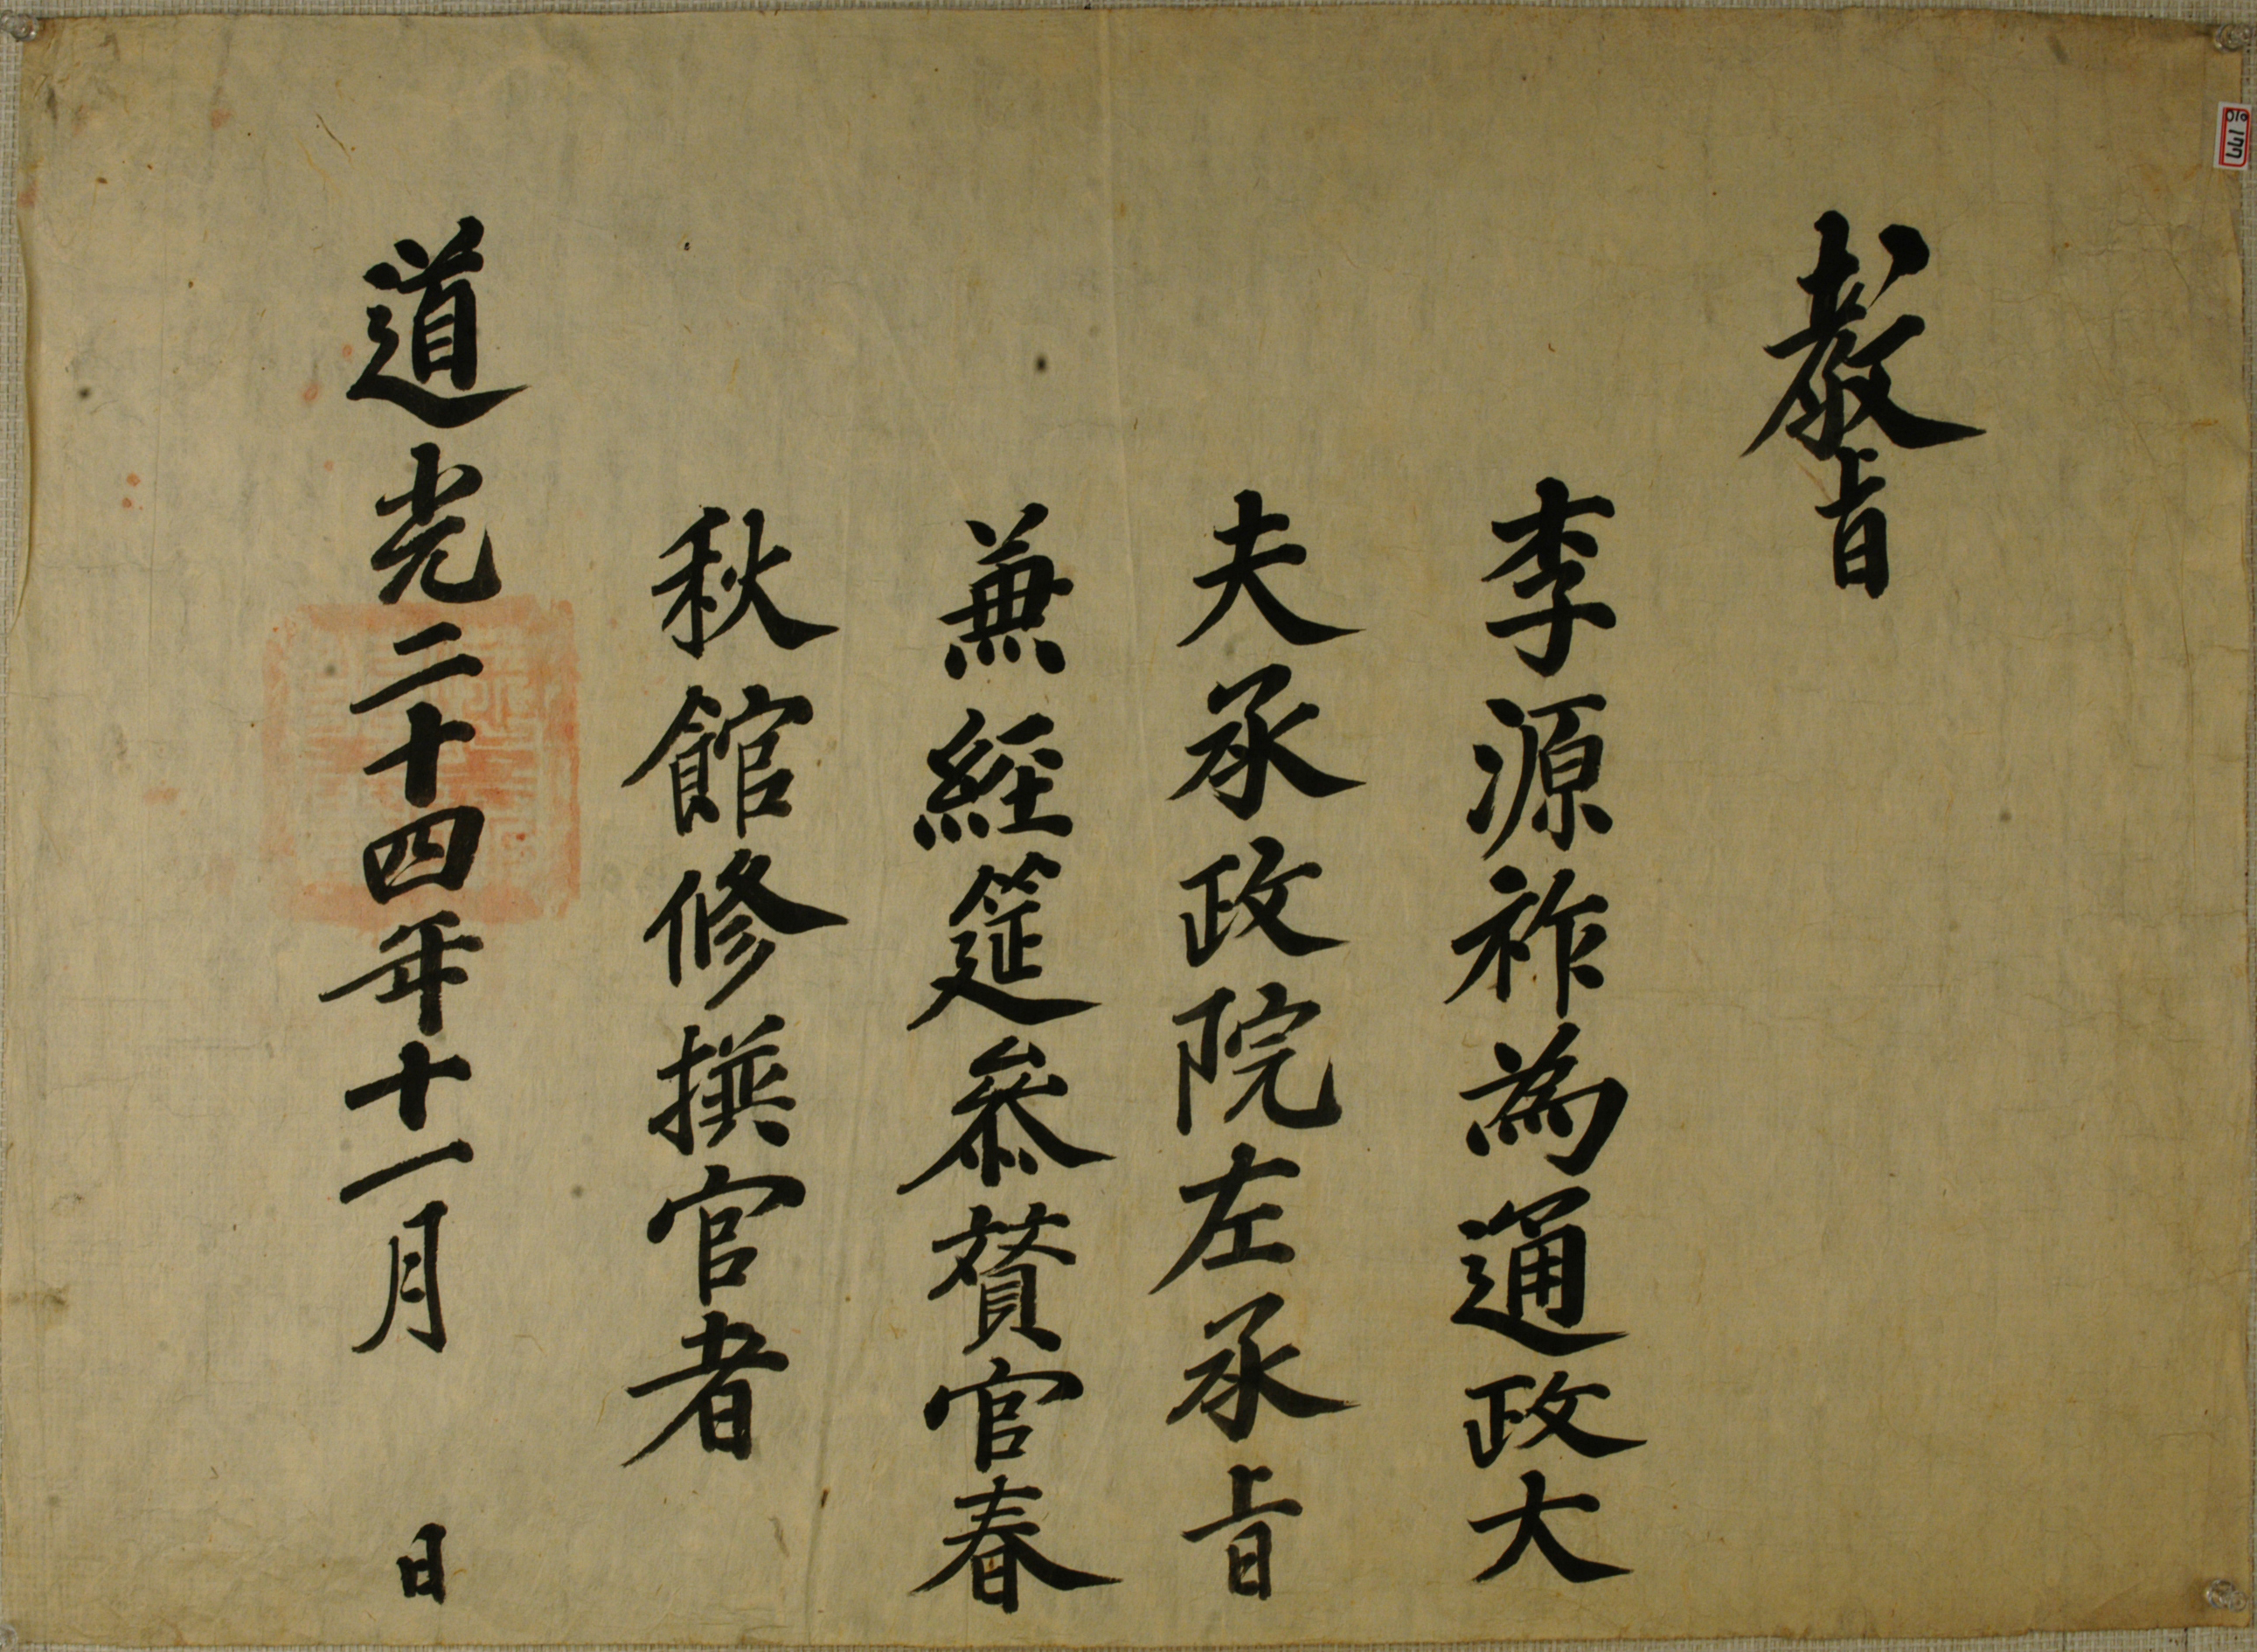 教旨
李源祚為通政大
夫承政院左承旨
兼經筵參贊官春
秋館修撰官者
道光二十四年十一月 日